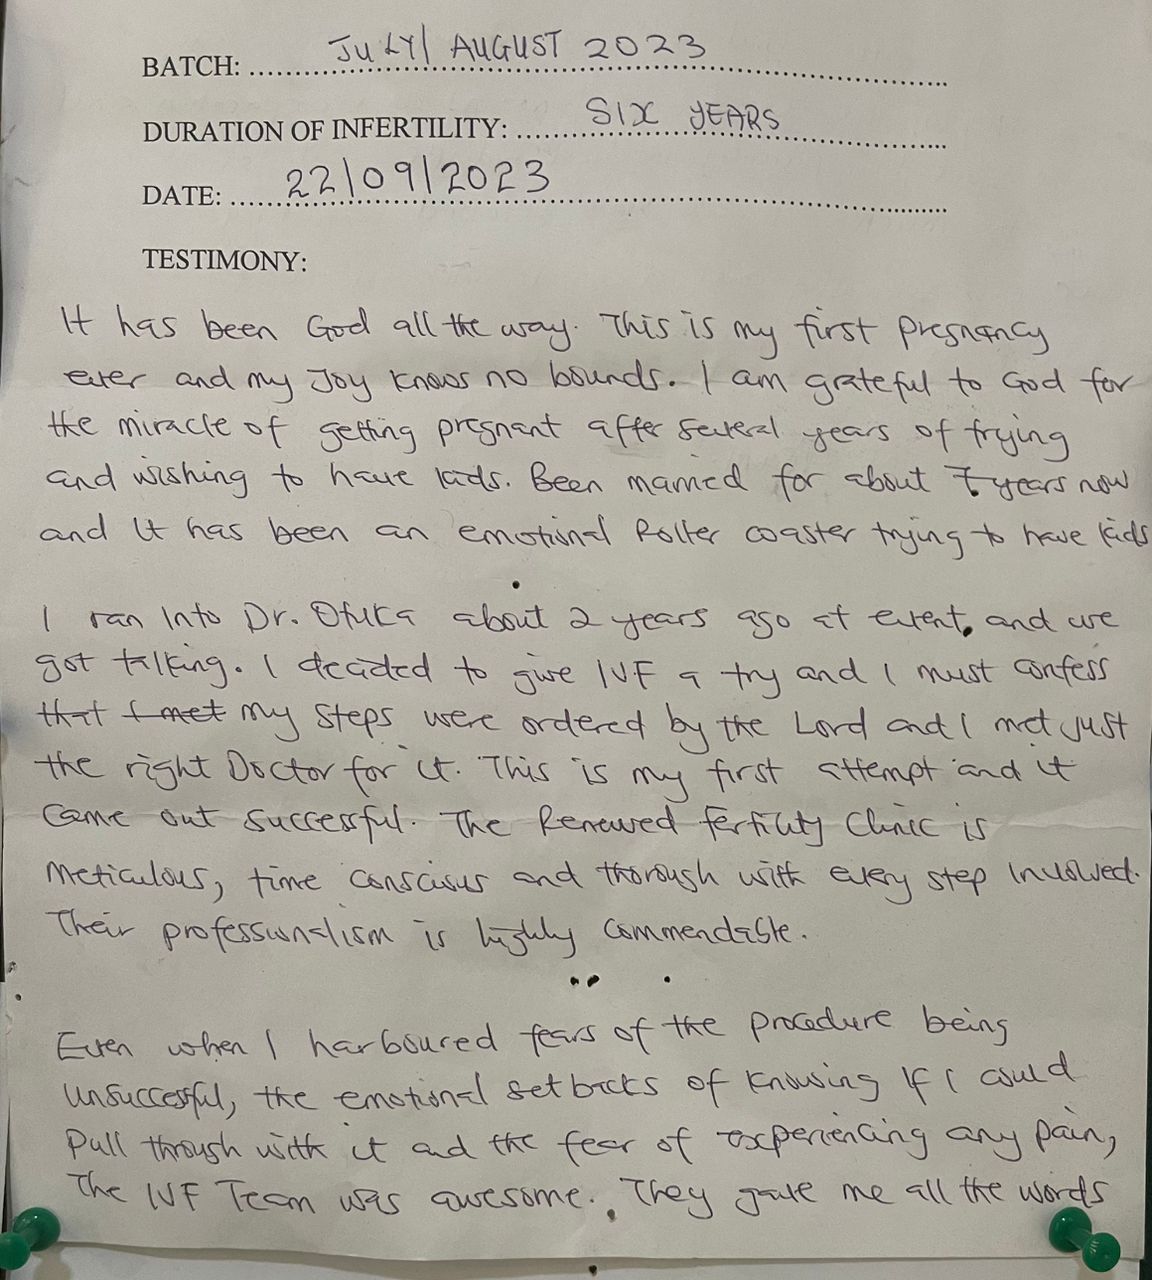 BATCH: JULY/ AUGUST 2023
DURATION OF INFERTILITY: SIX YEARS
DATE: 22/09/2023
TESTIMONY:
It has been God all the way. This is my first pregnancy
ever and my Joy knows no bounds. I am grateful to God for
the miracle of getting pregnant after several years of trying
and wishing to have kids. Been married for about 7 years now
and It has been an emotional Roller coaster trying to have kids
I ran Into Dr. Ofuka about 2 years ago at event, and we
got talking. I decided to give IVF a try and I must confess
that I met my steps were ordered by the Lord and I met just
the right Doctor for it. This is my first attempt and it
came out successful. The Renewed fertility Clinic is
Meticulous, time conscious and thorough with every step Involved.
Their professionalism is highly commendable.
Even when I harboured fears of the procedure being
Unsuccessful, the emotional setbacks of knowing If I could
Pull through with it and the fear of experiencing any pain,
The IVF Team was awesome. They gave me all the words